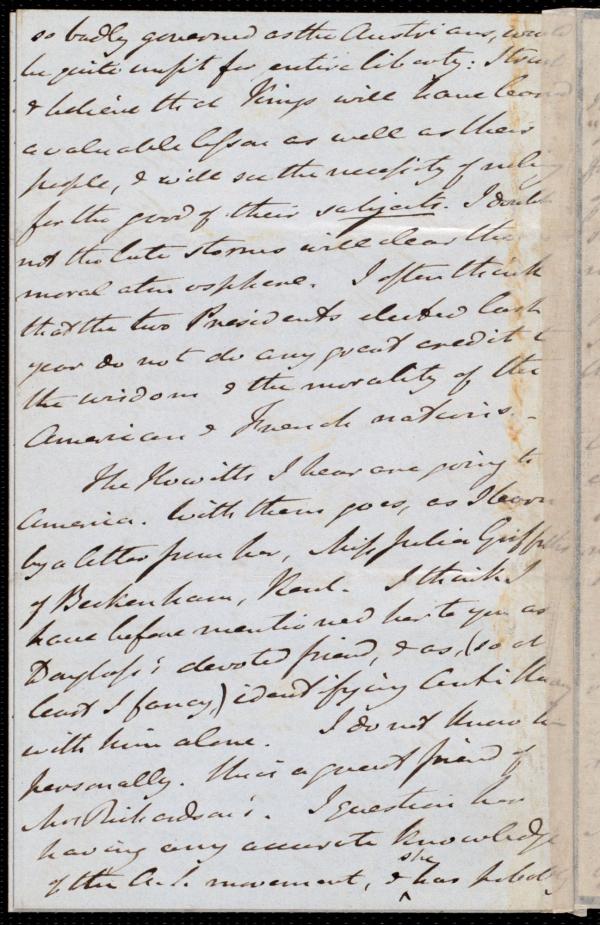 so badly governed as the Austrians, would
be quite unfit for entire liberty: I trust
& believe that Kings will have learnd
a valuable lesson as well as their
people, & will see the necessity of ruling
for the good of their subjects. I doubt
not the late storms will clear the
moral atmosphere. I often think
that the two Presidents elected last
year do not do any great credit to
the wisdom & the morality of the
American & French nations. -
The Howitts I hear are going to
America. With them goes, as I learn
by a letter from her, Miss Julia Griffiths
of Beckenham, Kent. I think I
have before mentioned her to you as
Douglass's devoted friend, & as, (so at
least I fancy,) identifying Anti Slavery
with him alone. I do not know her
personally. She is a great friend of
Mrs Richardson's. I question her
having any accurate knowledge
of the A.S. movement, & she has probably